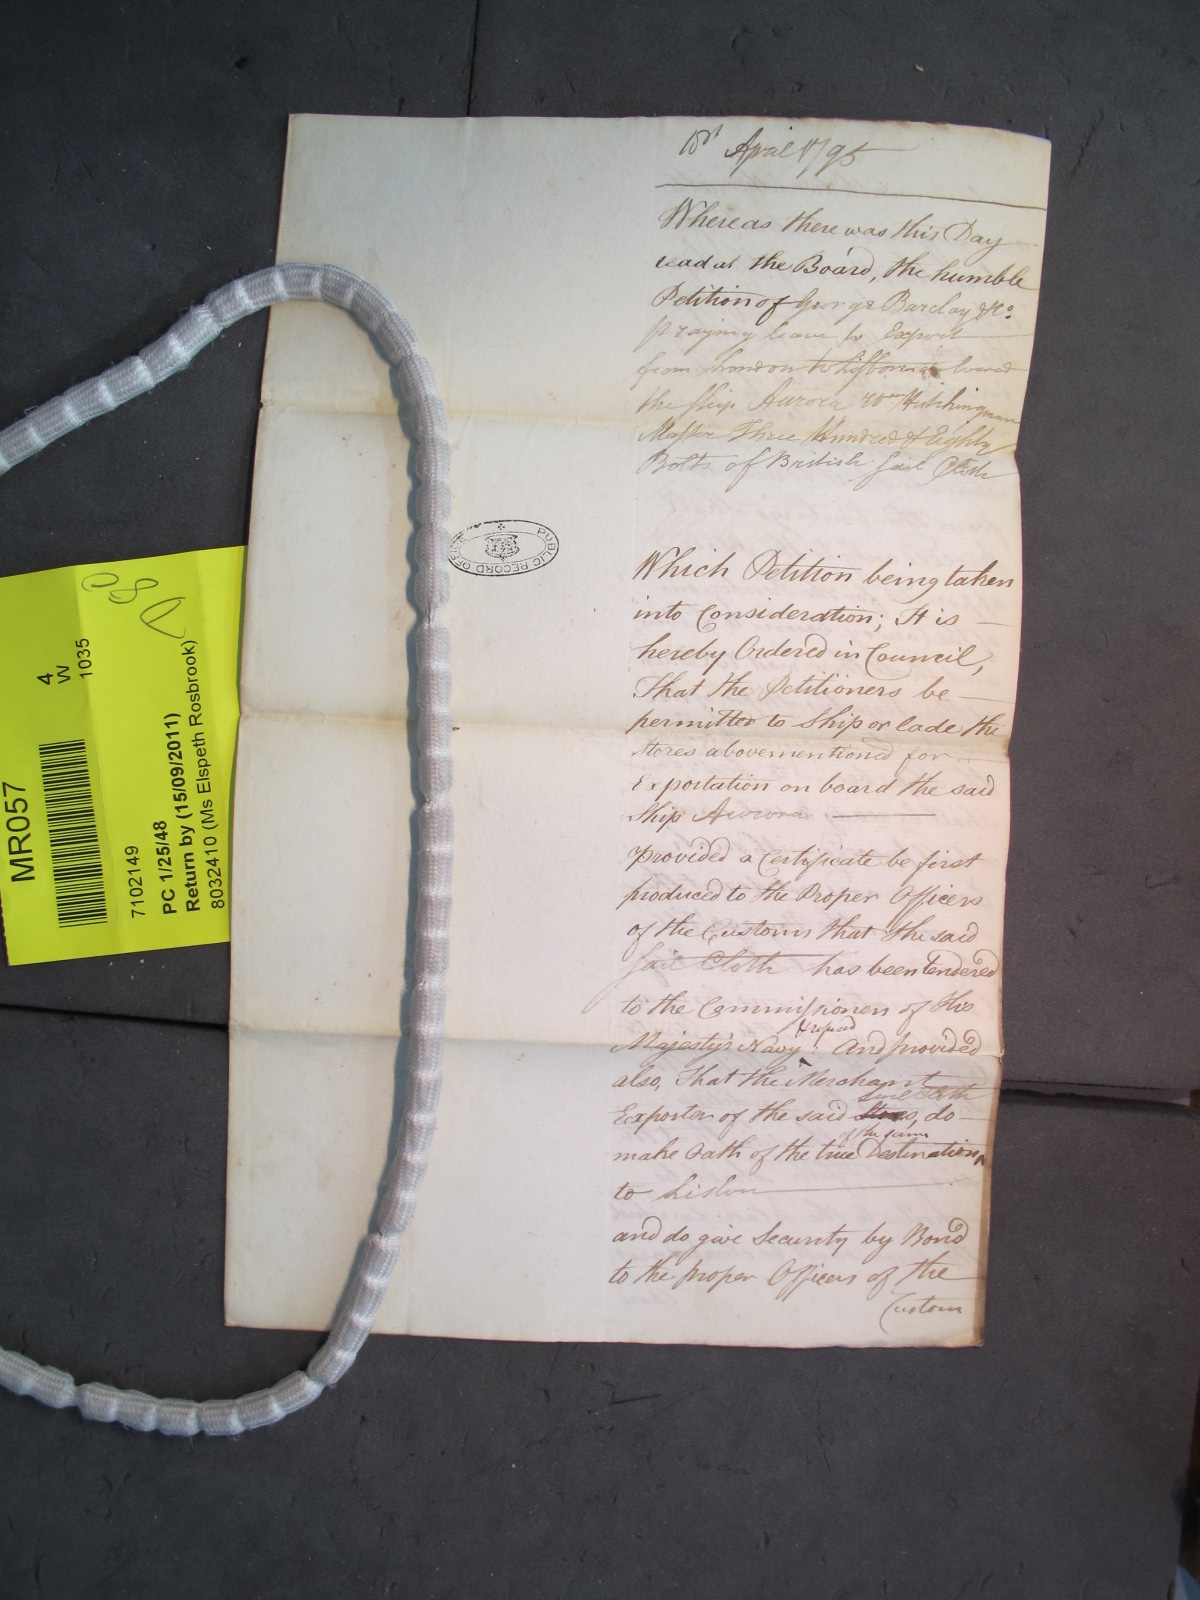 April 1795
Whereas there was this Day
read at the Board, the humble
Petition of George Barclay & Co.
praying leave to Export
from London to Lisbon on board
the ship Aurora Wm Hutchinson
Master Three Hundred & Eighty
Bolts of British Sail Cloth
Which Petition being taken
into Consideration; It is
hereby Ordered in Council,
That the Petitioners be
permitted to Ship or lade the
Stores abovementioned for
Exportation on board the said
Ship Aurora
Provided a Certificate be first
produced to the Proper Officers
of the Customs that the said
Sail Cloth has been tendered
to the Commissioners of His
Majesty's Navy & refused And provided
also, That the Merchant
Exporter of the said Stores Sail Cloth, do
make Oath of the true Destination of the same
to Lisbon
and do give Security by Bond
to the proper Officers of the
Custom
PUBLIC RECORD OFFICE
8D
MR057
4
W
1035
7102149
PC 1/25/48
Return by (15/09/2011)
8032410 (Ms Elspeth Rosbrook)